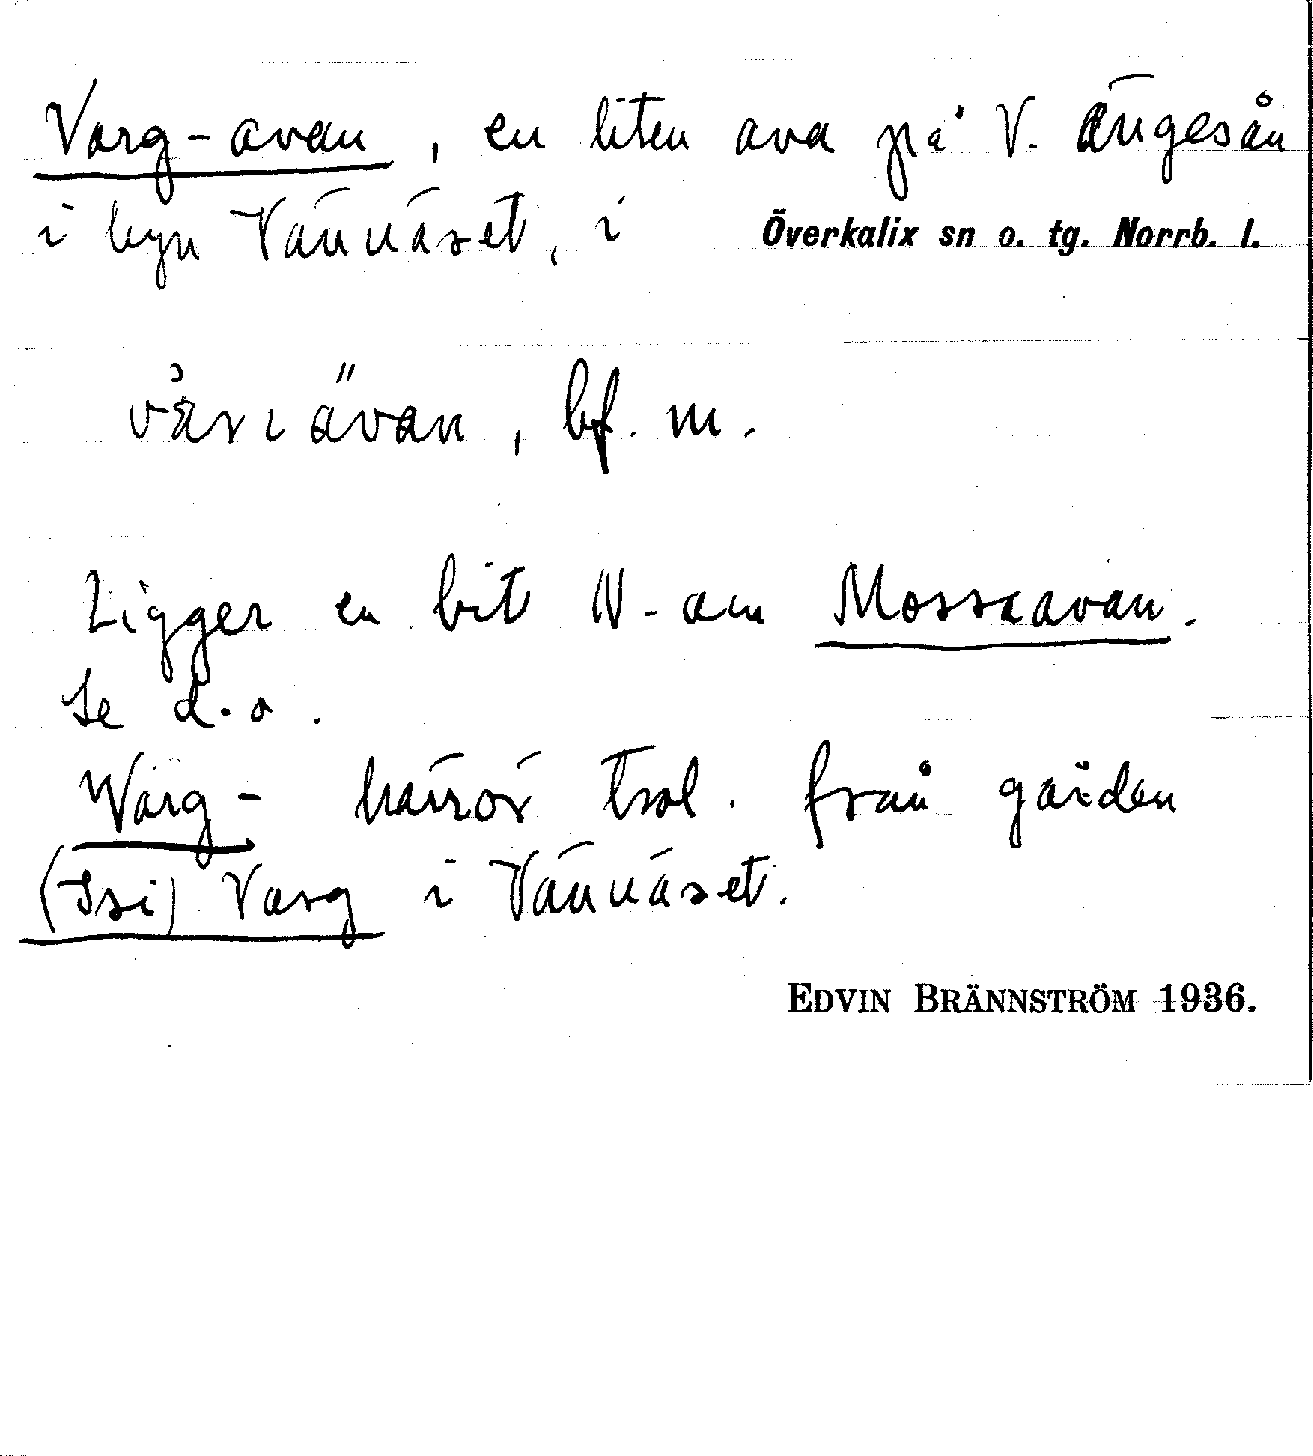 Varg-avan, en liten ava på V. Ängesån
i byn Vännäset, i Överkalix sn o. tg. Norrb. l.
bf. m.
Ligger en bit N-om Mossaavan.
Se d.o.
Warg- härrör trol. från gården
(Isi) Varg i Vännäset.
EDVIN BRÄNNSTRÖM 1936.